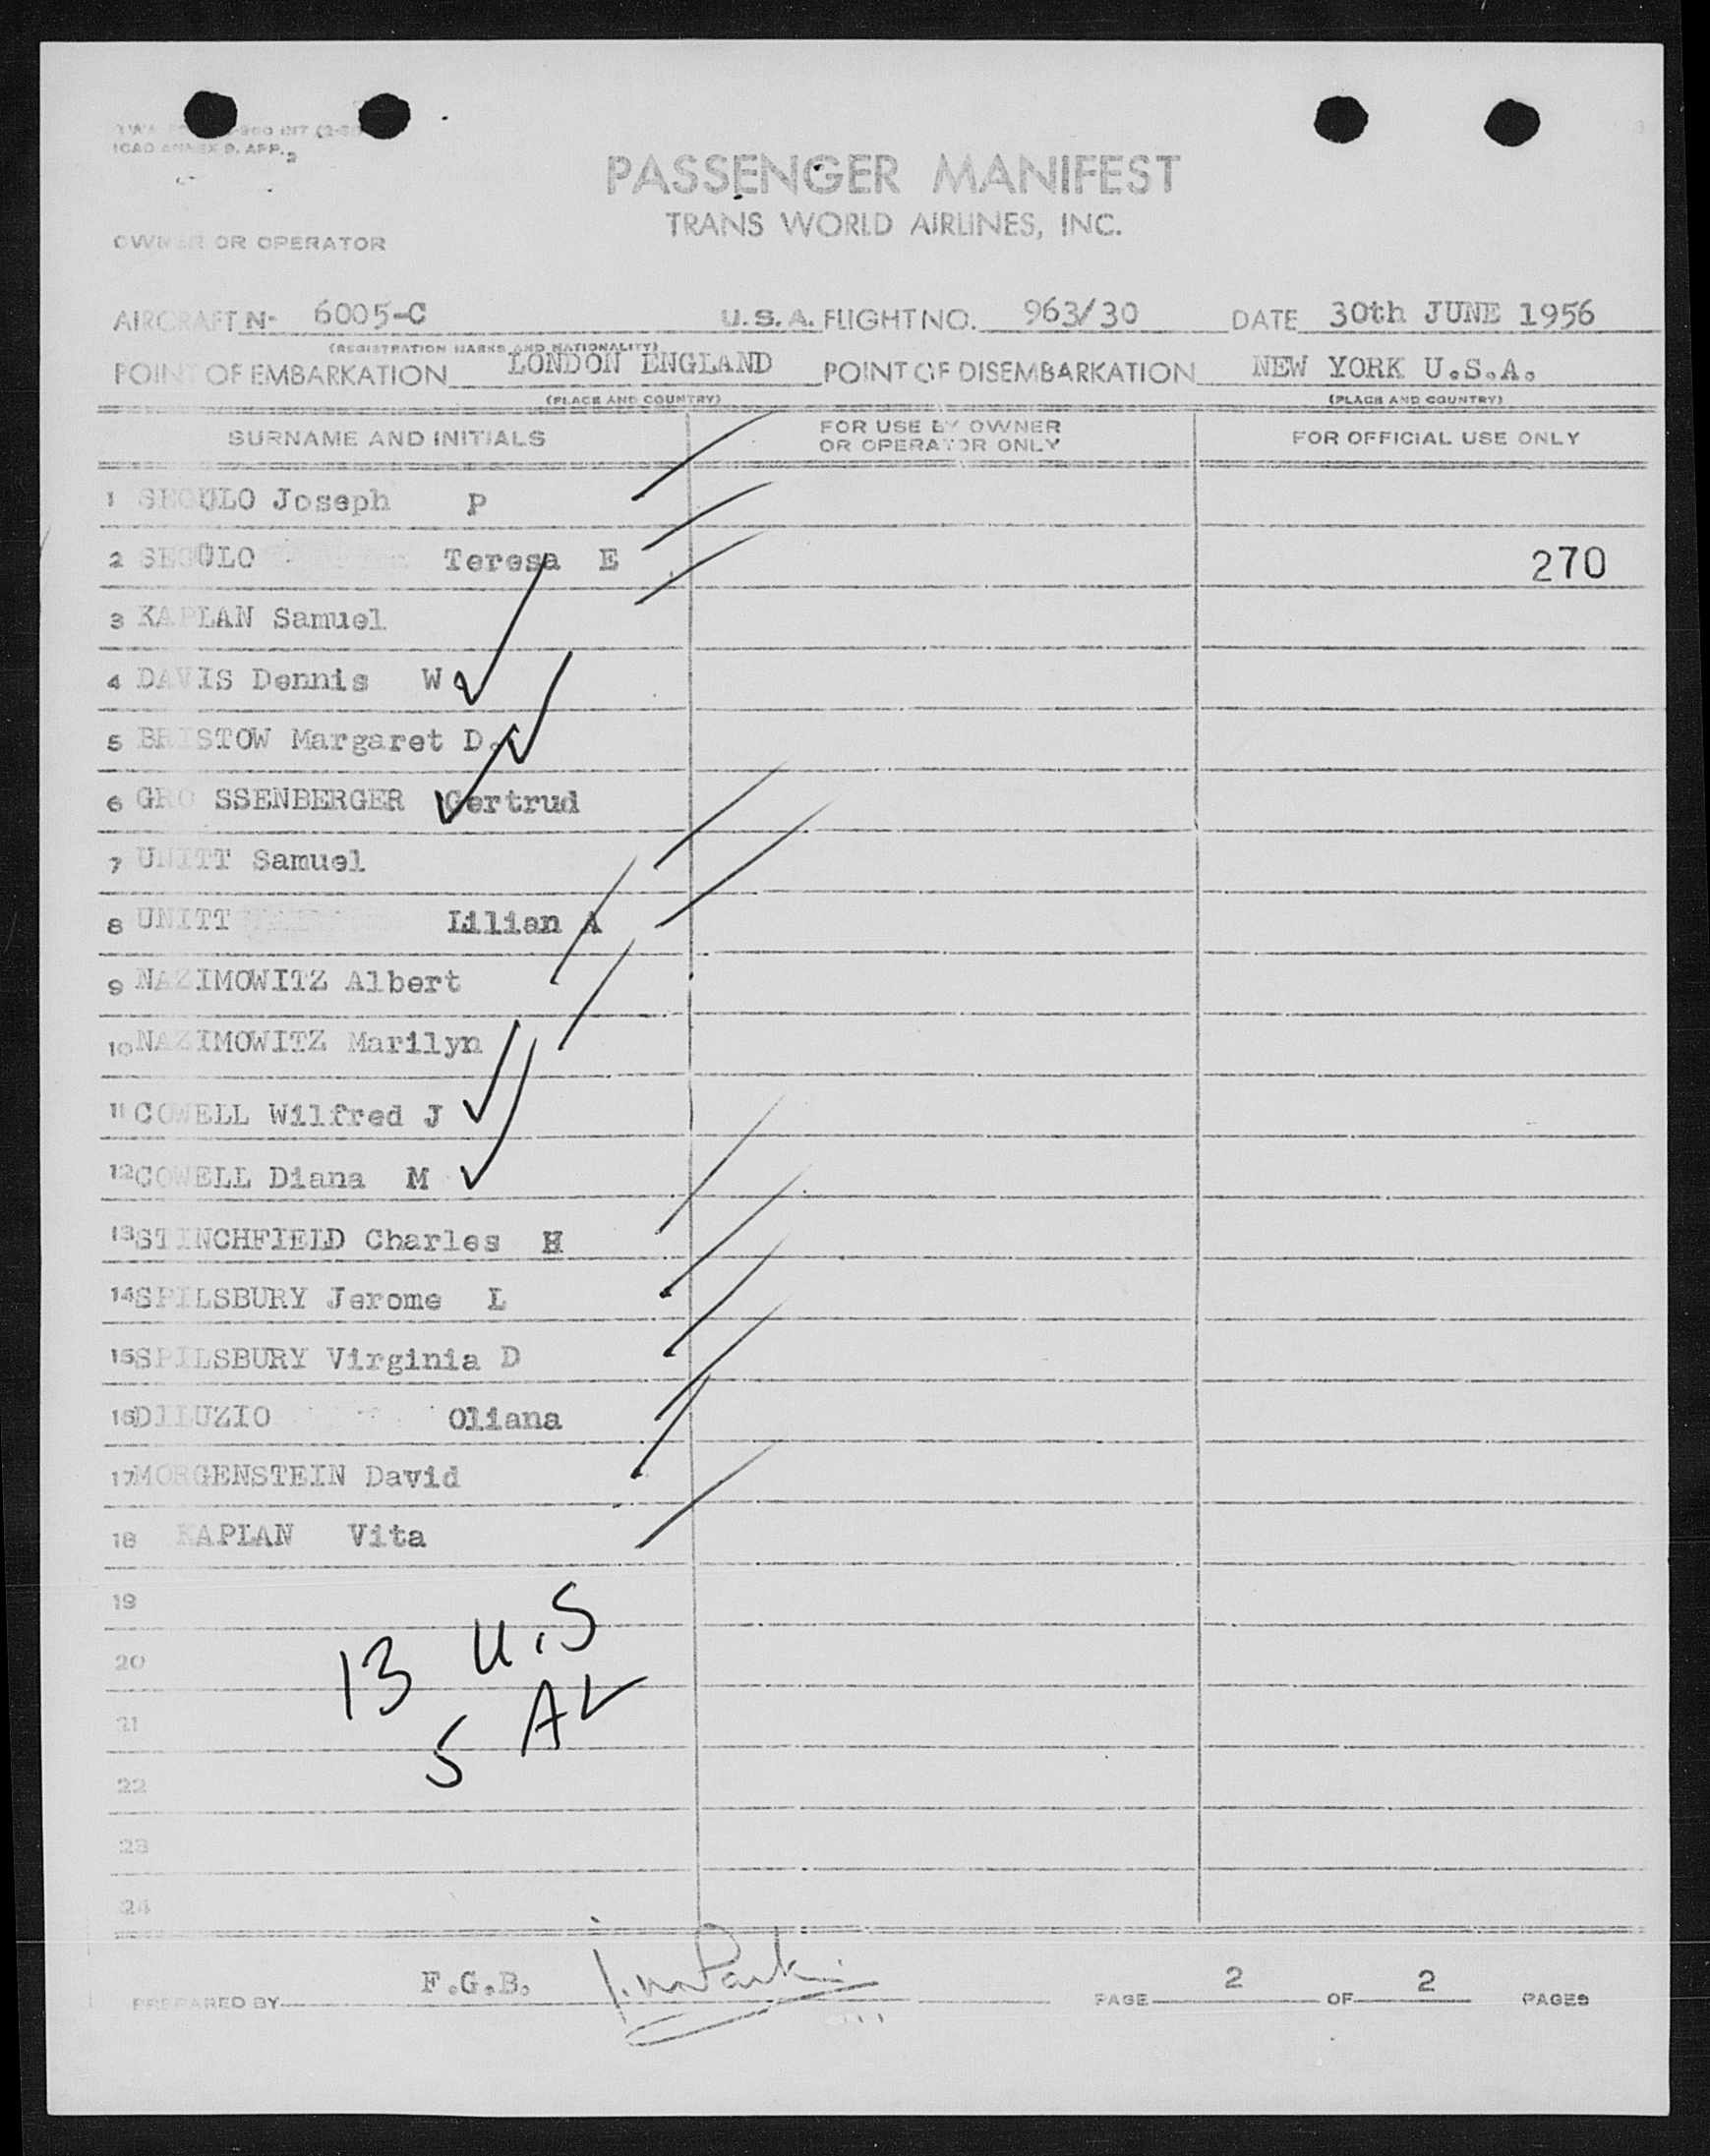 ICAO ANNEX 9. APP. 2
PASSENGER MANIFEST
TRANS WORLD AIRLINES, INC.
OWNER OR OPERATOR
AIRCRAFT N- 6005-C U.S.A. FLIGHT NO. 963/30 DATE 30th JUNE 1956
(REGISTRATION MARKS AND NATIONALITY)
POINT OF EMBARKATION LONDON ENGLAND POINT OF DISEMBARKATION NEW YORK U.S.A.
(PLACE AND COUNTRY) (PLACE AND COUNTRY)
SURNAME AND INITIALS FOR USE BY OWNER OR OPERATOR ONLY FOR OFFICIAL USE ONLY
1 Joseph P
2 Teresa E 270
3 KAPLAN Samuel
4 DAVIS Dennis W
5 BRISTOW Margaret D.
6 GRO SSENBERGER Gertrud
7 UNITT Samuel
8 UNITT Lilian A
9 NAZIMOWITZ Albert
10 NAZIMOWITZ Marilyn
11 COWELL Wilfred J
12 COWELL Diana M
13 STINCHFIELD Charles H
14 SPILSBURY Jerome L
15 SPILSBURY Virginia D
16 DILUZIO Oliana
17 MORGENSTEIN David
18 KAPLAN Vita
19
20 13 U.S
21 5 AL
22
23
24
PREPARED BY F.G.B. PAGE 2 OF 2 PAGES